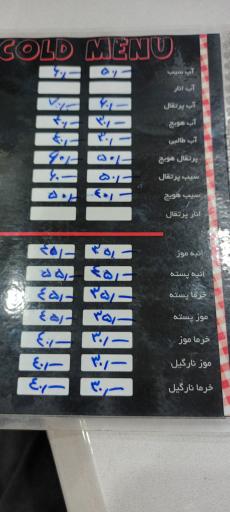 COLD MENU
آب سیب ۵۰/– ۶۰/–
آب انار
آب پرتقال ۶۰/– ۷۰/–
آب هویج ۳۰/– ۴۰/–
آب طالبی ۳۰/– ۴۰/–
پرتقال هویج ۵۰/– ۶۰/–
سیب پرتقال ۵۰/– ۶۰/–
سیب هویج ۴۰/– ۵۰/–
انار پرتقال
انبه موز ۳۵/– ۴۵/–
انبه پسته ۴۵/– ۵۵/–
خرما پسته ۳۵/– ۴۵/–
موز پسته ۳۵/– ۴۵/–
خرما موز ۳۰/– ۴۰/–
موز نارگیل ۳۰/– ۴۰/–
خرما نارگیل ۳۰/– ۴۰/–